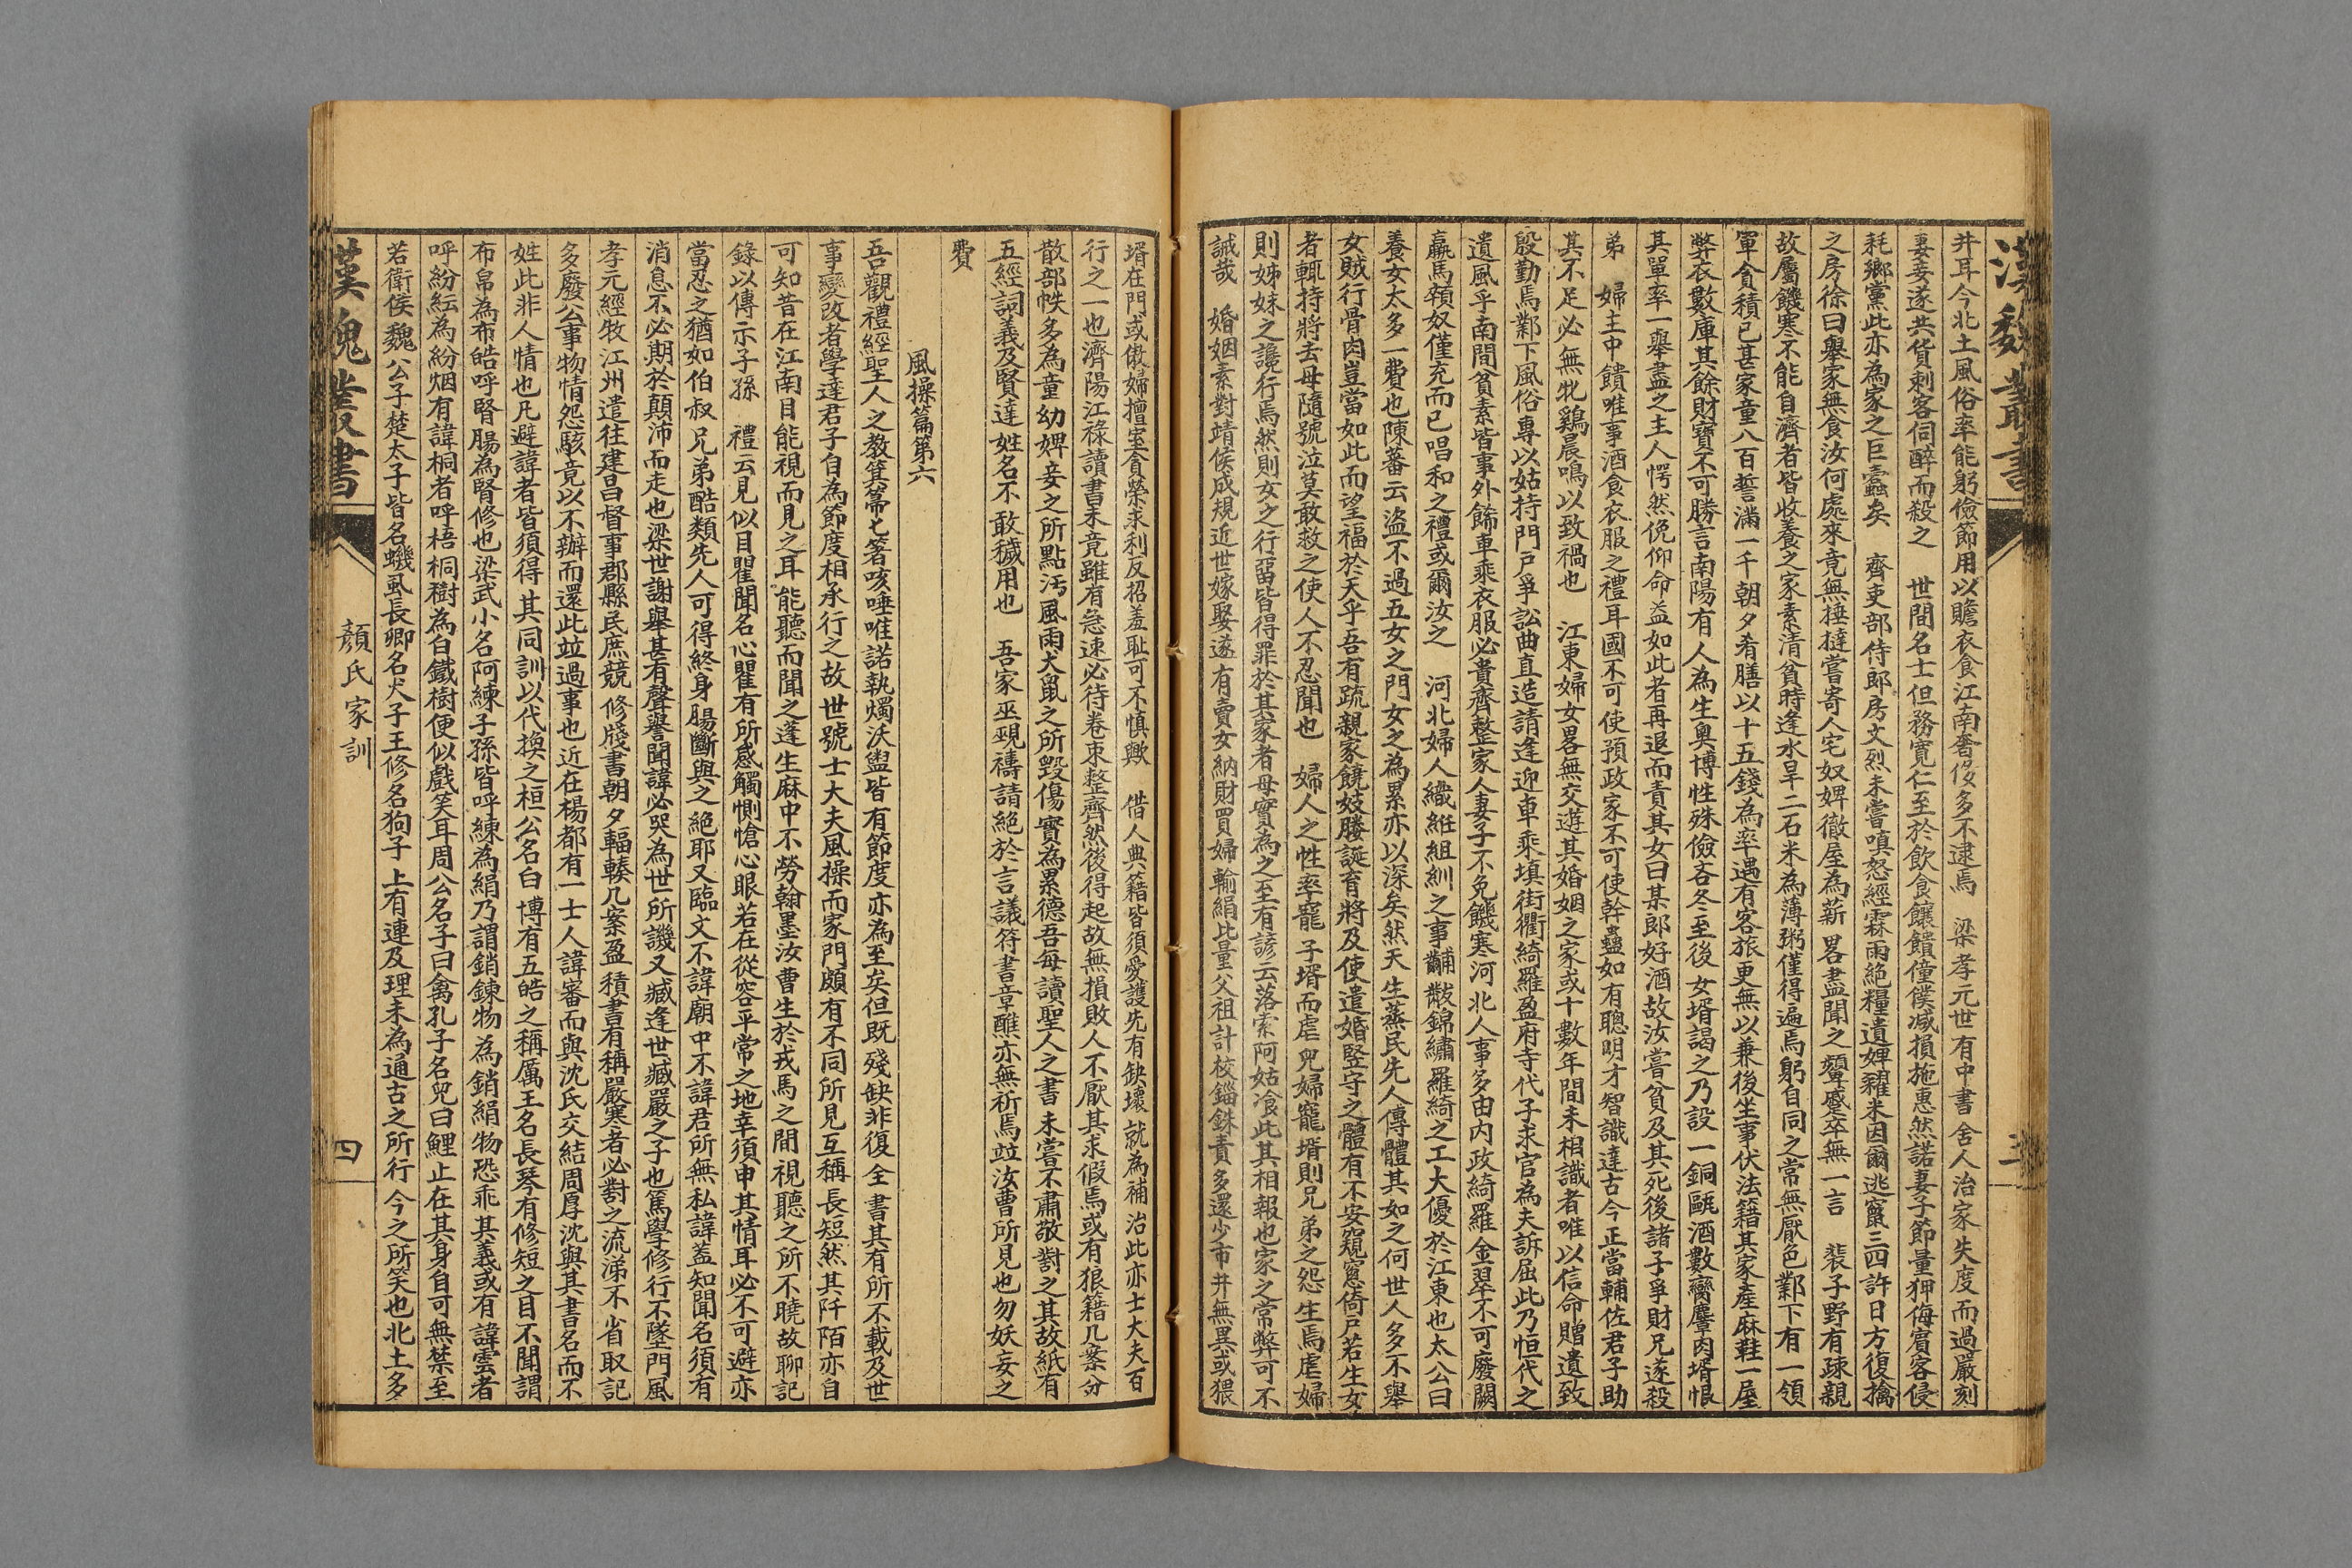 漢魏叢書
三
井耳今北土風俗率能躬儉節用以贍衣食江南奢侈多不逮焉　梁孝元世有中書舍人治家失度而過嚴刻
妻妾遂共貨刺客伺醉而殺之　世間名士但務寬仁至於飲食饟饋僮僕減損施惠然諾妻子節量狎侮賓客侵
耗鄉黨此亦為家之巨蠹矣　齊吏部侍郎房文烈未嘗嗔怒經霖雨絶糧遣婢糴米因爾逃竄三四許日方復擒
之房徐曰舉家無食汝何處來竟無捶撻嘗寄人宅奴婢徹屋為薪畧盡聞之顰蹙卒無一言　裴子野有疎親
故屬饑寒不能自濟者皆收養之家素清貧時逢水旱二石米為薄粥僅得遍焉躬自同之常無厭色鄴下有一領
軍貪積已甚家童八百誓滿一千朝夕肴膳以十五錢為率遇有客旅更無以兼後坐事伏法籍其家產麻鞋一屋
弊衣數庫其餘財寶不可勝言南陽有人為生奧博性殊儉吝冬至後女壻謁之乃設一銅甌酒數臠麞肉壻恨
其單率一舉盡之主人愕然俛仰命益如此者再退而責其女曰某郎好酒故汝嘗貧及其死後諸子爭財兄遂殺
弟　婦主中饋唯事酒食衣服之禮耳國不可使預政家不可使幹蠱如有聰明才智識達古今正當輔佐君子助
其不足必無牝鷄晨鳴以致禍也　江東婦女畧無交遊其婚姻之家或十數年間未相識者唯以信命贈遺致
殷勤焉鄴下風俗專以姑持門戶爭訟曲直造請逢迎車乘填街衢綺羅盈府寺代子求官為夫訴屈此乃恒代之
遺風乎南間貧素皆事外餙車乘衣服必貴齊整家人妻子不免饑寒河北人事多由內政綺羅金翠不可廢闕
羸馬顇奴僅充而已唱和之禮或爾汝之　河北婦人織絍組紃之事黼黻錦繡羅綺之工大優於江東也太公曰
養女太多一費也陳蕃云盜不過五女之門女之為累亦以深矣然天生蒸民先人傳體其如之何世人多不舉
女賊行骨肉豈當如此而望福於天乎吾有疏親家饒妓媵誕育將及便遣婚竪守之體有不安窺窗倚戶若生女
者輒持將去母隨號泣莫敢救之使人不忍聞也　婦人之性率寵子壻而虐兒婦寵壻則兄弟之怨生焉虐婦
則姊妹之讒行焉然則女之行留皆得罪於其家者母實為之至有諺云落索阿姑飡此其相報也家之常弊可不
誡哉　婚姻素對靖侯成規近世嫁娶遂有賣女納財買婦輸絹比量父祖計校錙銖責多還少市井無異或猥
壻在門或傲婦擅室貪榮求利反招羞恥可不慎歟　借人典籍皆須愛護先有缺壞就為補治此亦士大夫百
行之一也濟陽江祿讀書未竟雖有急速必待卷束整齊然後得起故無損敗人不厭其求假焉或有狼籍几案分
散部帙多為童幼婢妾之所點汚風雨犬鼠之所毀傷實為累德吾每讀聖人之書未嘗不肅敬對之其故紙有
五經詞義及賢達姓名不敢穢用也　吾家巫覡禱請絕於言議符書章醮亦無祈焉竝汝曹所見也勿妖妄之
費
風操篇第六
吾觀禮經聖人之教箕箒匕箸咳唾唯諾執燭沃盥皆有節度亦為至矣但既殘缺非復全書其有所不載及世
事變改者學達君子自為節度相承行之故世號士大夫風操而家門頗有不同所見互稱長短然其阡陌亦自
可知昔在江南目能視而見之耳能聽而聞之蓬生麻中不勞翰墨汝曹生於戎馬之間視聽之所不曉故聊記
錄以傳示子孫　禮云見似目瞿聞名心瞿有所感觸惻愴心眼若在從容平常之地幸須申其情耳必不可避亦
當忍之猶如伯叔兄弟酷類先人可得終身腸斷與之絕耶又臨文不諱廟中不諱君所無私諱蓋知聞名須有
消息不必期於顛沛而走也梁世謝舉甚有聲譽聞諱必哭為世所譏又臧逢世臧嚴之子也篤學修行不墜門風
孝元經牧江州遣往建昌督事郡縣民庶競修牋書朝夕輻輳几案盈積書有稱嚴寒者必對之流涕不省取記
多廢公事物情怨駭竟以不辦而還此竝過事也近在楊都有一士人諱審而與沈氏交結周厚沈與其書名而不
姓此非人情也凡避諱者皆須得其同訓以代換之桓公名白博有五皓之稱厲王名長琴有修短之目不聞謂
布帛為布皓呼腎腸為腎修也梁武小名阿練子孫皆呼練為絹乃謂銷鍊物為銷絹物恐乖其義或有諱雲者
呼紛紜為紛烟有諱桐者呼梧桐樹為白鐵樹便似戲笑耳周公名子曰禽孔子名兒曰鯉止在其身自可無禁至
若衛侯魏公子楚太子皆名蟣虱長卿名犬子王修名狗子上有連及理未為通古之所行今之所笑也北土多
漢魏叢書
顏氏家訓
四